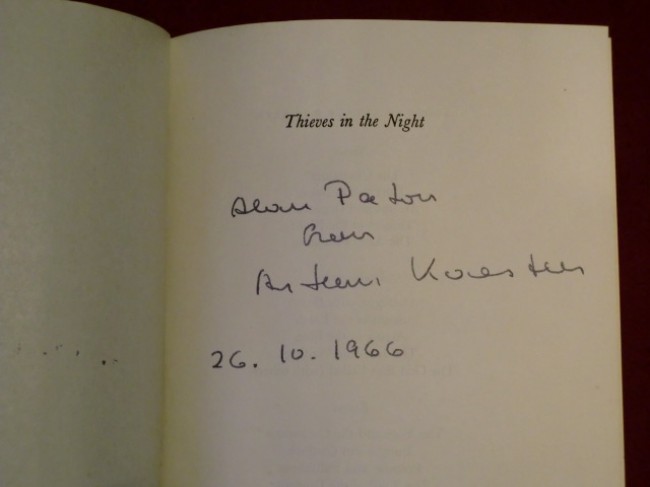 Thieves in the Night
Alan Paton
from
Arthur Koestler
26. 10. 1966